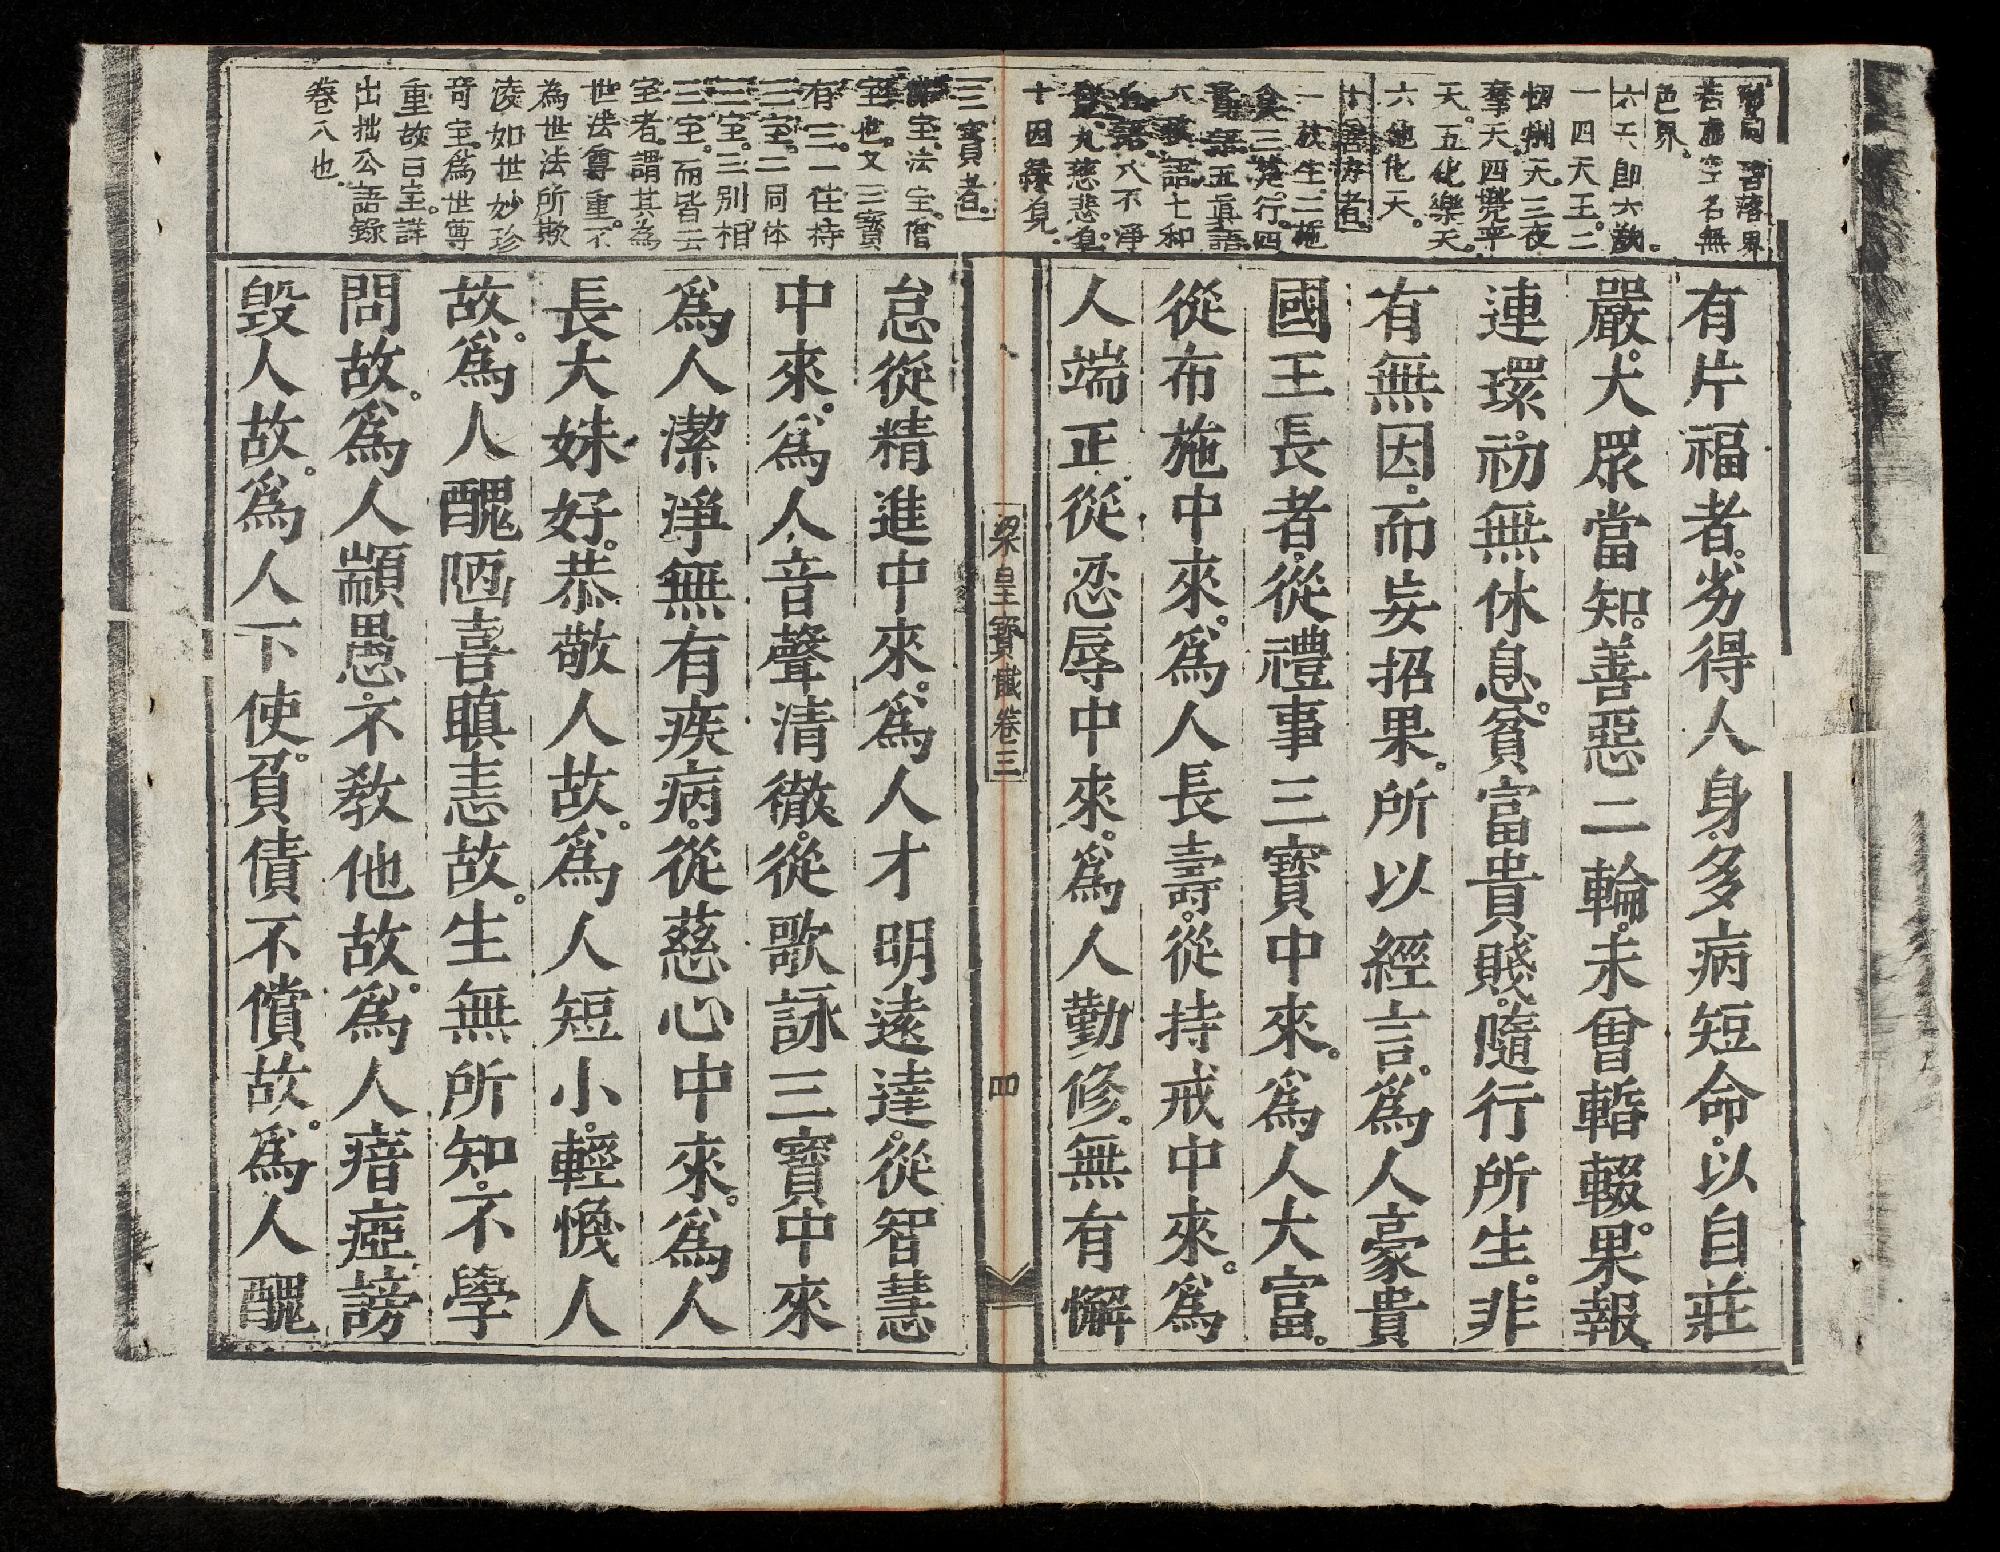 若虛空名無
色界。
六天即六欲
一四天王。二
忉利天。三夜
摩天。四兜率
天。五化樂天。
六他化天。
十善者
一放生。二施
食三梵行。四
語五眞語
六語七和
語八不淨
九慈悲
十因緣見。
有片福者。劣得人身。多病短命。以自莊
嚴。大眾當知。善惡二輪。未曾暫輟。果報
連環。初無休息。貧富貴賤。隨行所生。非
有無因。而妄招果。所以經言。爲人豪貴
國王長者。從禮事三寶中來。爲人大富。
從布施中來。爲人長壽。從持戒中來。爲
人端正。從忍辱中來。爲人勤修。無有懈
梁皇寶懺卷三
四
三寶者。
佛宝。法宝。僧
宝也。文三寳
有三。一住持
三宝。二同体
三宝。三別相
三宝。而皆云
宝者。謂其為
世法尊重。不
為世法所欺
凌如世妙珍
竒宝。為世尊
重。故曰宝。詳
出拙公語錄
卷八也。
怠從精進中來。爲人才明遠達。從智慧
中來。爲人音聲清徹。從歌詠三寶中來
爲人潔淨無有疾病。從慈心中來。爲人
長大姝好。恭敬人故。爲人短小。輕慢人
故。爲人醜陋喜瞋恚故。生無所知。不學
問故。爲人顓愚。不敎他故。爲人瘖瘂。謗
毀人故。爲人下使。負債不償故。爲人醜